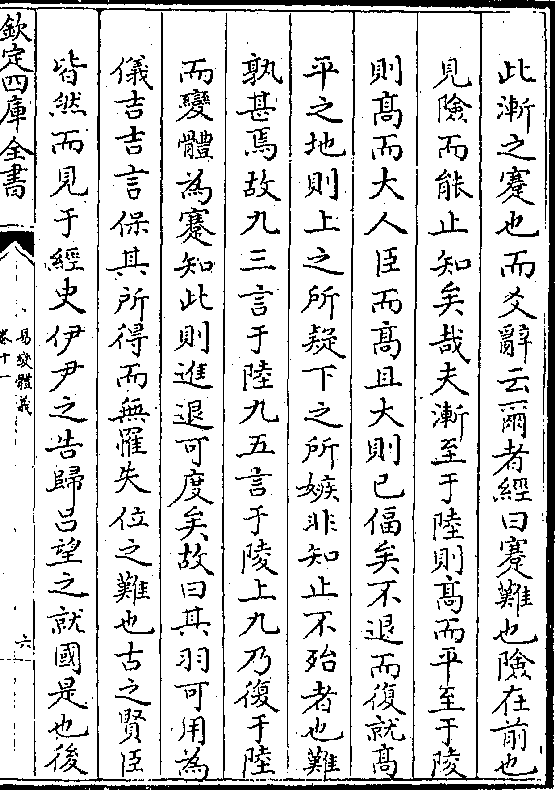 此漸之蹇也而爻辭云爾者經曰蹇難也險在前也
見險而能止知矣哉夫漸至于陸則髙而平至于陵
則髙而大人臣而髙且大則已偪矣不退而復就髙
平之地則上之所疑下之所嫉非知止不殆者也難
孰甚焉故九三言于陸九五言于陵上九乃復于陸
而變體為蹇知此則進退可度矣故曰其羽可用為
儀吉吉言保其所得而無罹失位之難也古之賢臣
皆然而見于經史伊尹之告歸吕望之就國是也後
欽定四庫全書
易變體義
卷十一
六